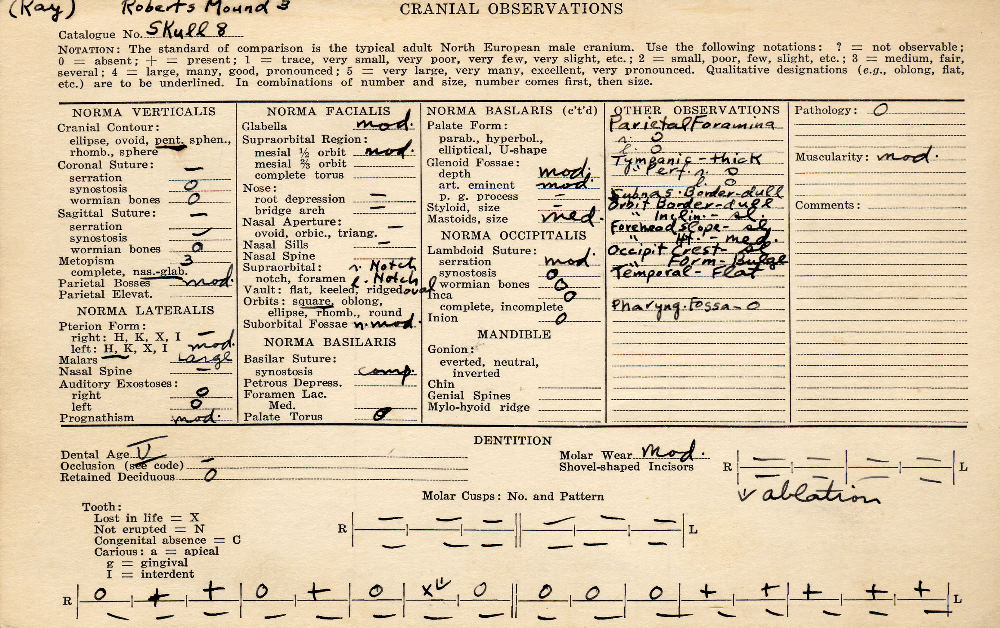 (Ray) Roberts Mound 3
CRANIAL OBSERVATIONS
Catalogue No. Skull 8
NOTATION: The standard of comparison is the typical adult North European male cranium. Use the following notations: ? = not observable;
0 = absent; + = present; 1 = trace, very small, very poor, very few, very slight, etc.; 2 = small, poor, few, slight, etc.; 3 = medium, fair,
several; 4 = large, many, good, pronounced; 5 = very large, very many, excellent, very pronounced. Qualitative designations (e.g., oblong, flat,
etc.) are to be underlined. In combinations of number and size, number comes first, then size.
NORMA VERTICALIS
Cranial Contour:
ellipse, ovoid, pent. sphen.,
rhomb., sphere
Coronal Suture: —
serration
synostosis 0
wormian bones 0
Sagittal Suture: —
serration
synostosis
wormian bones 0
Metopism 3
complete, nas.-glab.
Parietal Bosses mod.
Parietal Elevat.
NORMA LATERALIS
Pterion Form:
right: H, K, X, I —
left: H, K, X, I mod.
Malars Large
Nasal Spine —
Auditory Exostoses:
right 0
left 0
Prognathism mod.
NORMA FACIALIS
Glabella mod.
Supraorbital Region:
mesial ½ orbit mod.
mesial ⅔ orbit
complete torus
Nose:
root depression —
bridge arch —
Nasal Aperture:
ovoid, orbic., triang.
Nasal Sills —
Nasal Spine
Supraorbital: r. Notch
notch, foramen l. Notch
Vault: flat, keeled, ridged oval
Orbits: square, oblong,
ellipse, rhomb., round
Suborbital Fossae r. mod.
NORMA BASILARIS
Basilar Suture:
synostosis comp.
Petrous Depress.
Foramen Lac.
Med.
Palate Torus 0
NORMA BASLARIS (c't'd)
Palate Form:
parab., hyperbol.,
elliptical, U-shape
Glenoid Fossae:
depth mod.
art. eminent mod.
p. g. process
Styloid, size —
Mastoids, size med.
NORMA OCCIPITALIS
Lambdoid Suture:
serration mod.
synostosis 0
wormian bones 0
Inca 0
complete, incomplete
Inion 0
MANDIBLE
Gonion:
everted, neutral,
inverted
Chin
Genial Spines
Mylo-hyoid ridge
OTHER OBSERVATIONS
Parietal Foramina
r. 0
l. 0
Tympanic - thick
" Perf. r. 0
0
Subnas. Border-dull
Orbit Border-dull
" Inclin. - sl.
Forehead slope - sl.
" Ht. - med.
Occipit Crest - sl
" Form - Bulge
Temporal - Flat
Pharyng. Fossa - 0
Pathology: 0
Muscularity: mod.
Comments:
DENTITION
Dental Age V
Occlusion (see code) —
Retained Deciduous 0
Molar Wear mod.
Shovel-shaped Incisors
R L
ablation
Molar Cusps: No. and Pattern
R L
Tooth:
Lost in life = X
Not erupted = N
Congenital absence = C
Carious: a = apical
g = gingival
I = interdent
R 0 + + 0 + 0 X 0 0 0 0 + + + + + L